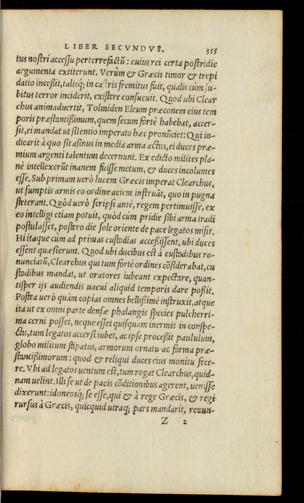 LIBER SECVNDVS. 355
tus nostri accessu perterrefactū: cuius rei certa postridie
argumenta extiterunt. Verùm & Græcis timor & trepi
datio incessit, talisq́; in castris fremitus fuit, qualis cùm su-
bitus terror inciderit, existere consueuit. Quod ubi Clear
chus animaduertit, Tolmiden Eleum præconem eius tem
poris præstantißimum, quem secum fortè habebat, accer-
sit, ei mandat ut silentio imperato hæc pronūciet: Qui in-
dicarit à quo sit asinus in media arma actus, ei duces præ-
mium argenti talentum decernunt. Ex edicto milites pla-
nè intellexerūt inanem fuisse metum, & duces incolumes
esse. Sub primam uerò lucem Græcis imperat Clearchus,
ut sumptis armis eo ordine aciem instruāt, quo in pugna
steterant. Quòd uerò scripsi antè, regem pertimuisse, ex
eo intelligi etiam potuit, quòd cùm pridie sibi arma tradi
postulasset, postero die sole oriente de pace legatos misit.
Hi itaque cùm ad primas custodias accessissent, ubi duces
essent quæsierunt. Quod ubi ducibus est à custodibus re-
nunciatū, Clearchus qui tum fortè ordines cōsiderabat, cu
stodibus mandat, ut oratores iubeant expectare, quan-
tisper ijs audiendis uacui aliquid temporis dare poßit.
Postea uerò quàm copias omnes bellißimè instruxit, atque
ita ut ex omni parte densæ phalangis species pulcherri-
ma cerni posset, neque esset quisquam inermis in conspe-
ctu, tum legatos accersi iubet, ac ipse processit paululum,
globo militum stipatus, armorum ornatu ac forma præ-
stantißimorum: quod & reliqui duces eius monitu fece-
re. Vbi ad legatos uentum est, tum rogat Clearchus, quid-
nam uelint. Illi se ut de pacis cōditionibus agerent, uenisse
dixerunt: idoneosq́; se esse, qui & à rege Græcis, & regi
rursus à Græcis, quicquid utraq; pars mandarit, renun-
Z 2